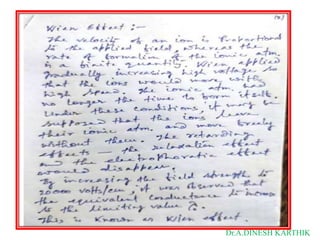 Wien Effect :-
The velocity of an ion is Proportional
to the applied field, whereas the
rate of formation of the ionic atm.
is a finite quantity. Wien applied
gradually increasing high voltage so
that the ions would move with
high speed. The ionic atm. had
no longer the time to form itself.
Under these conditions, it may be
supposed that the ions leave
their ionic atm. and move freely
without them. The retarding
effects — the relaxation effect
and the electrophoretic effect
would disappear.
By increasing the field strength to
20000 volts/cm. it was observed that
the equivalent conductance to increase
to the limiting value
This is known as Wien effect.
Dr.A.DINESH KARTHIK